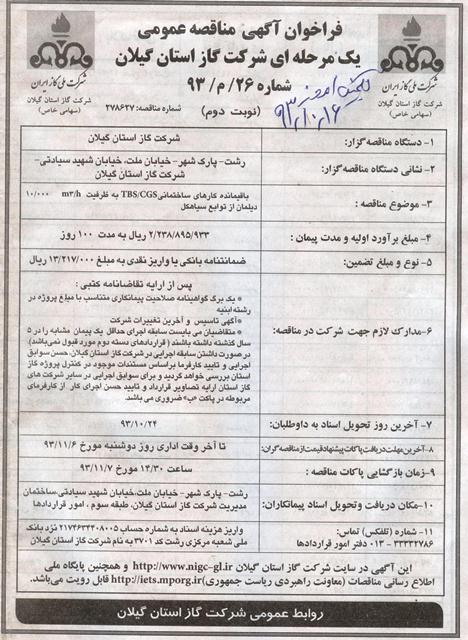 فراخوان آگهی مناقصه عمومی
یک مرحله ای شرکت گاز استان گیلان
شماره ۲۶/م/۹۳
(نوبت دوم)
شماره مناقصه: ۲۷۸۶۲۷
شرکت ملی گاز ایران
شرکت گاز استان گیلان
(سهامی خاص)
شرکت ملی گاز ایران
شرکت گاز استان گیلان
(سهامی خاص)
۹۳/۱۰/۱۶
۱- دستگاه مناقصه گزار:
شرکت گاز استان گیلان
۲- نشانی دستگاه مناقصه گزار:
رشت- پارک شهر- خیابان ملت، خیابان شهید سیادتی-
شرکت گاز استان گیلان
۳- موضوع مناقصه :
باقیمانده کارهای ساختمانی TBS/CGS به ظرفیت ۱۰/۰۰۰ m3/h
دیلمان از توابع سیاهکل
۴- مبلغ برآورد اولیه و مدت پیمان :
۲/۲۳۸/۸۹۵/۹۳۳ ریال به مدت ۱۰۰ روز
۵- نوع و مبلغ تضمین:
ضمانتنامه بانکی یا واریز نقدی به مبلغ ۱۳/۲۱۷/۰۰۰ ریال
۶-مدارک لازم جهت شرکت در مناقصه:
پس از ارایه تقاضانامه کتبی :
* یک برگ گواهینامه صلاحیت پیمانکاری متناسب با مبلغ پروژه در
رشته ابنیه
*آگهی تاسیس و آخرین تغییرات شرکت
* متقاضیان می بایست سابقه اجرای حداقل یک پیمان مشابه را در ۵
سال گذشته داشته باشند (قراردادهای دسته دوم مورد قبول نمی‌باشد).
در صورت داشتن سابقه اجرایی در شرکت گاز استان گیلان، حسن سوابق
اجرایی و تایید کارفرما براساس مستندات موجود در کنترل پروژه گاز
استان بررسی خواهد گردید و برای سوابق اجرایی در سایر شرکت های
گاز استان ارایه تصاویر قرارداد و تایید حسن اجرای کار از کارفرمای
مربوطه در پاکت «ب» ضروری می باشد.
۷- آخرین روز تحویل اسناد به داوطلبان:
۹۳/۱۰/۲۴
۸-آخرین مهلت دریافت پاکات پیشنهاد قیمت از مناقصه گران:
تا آخر وقت اداری روز دوشنبه مورخ ۹۳/۱۱/۶
۹-زمان بازگشایی پاکات مناقصه :
ساعت ۱۴/۳۰ مورخ ۹۳/۱۱/۷
۱۰-مکان دریافت و تحویل اسناد پیمانکاران:
رشت- پارک شهر- خیابان ملت،خیابان شهید سیادتی،ساختمان
مدیریت شرکت گاز استان گیلان، طبقه سوم ، امور قراردادها
۱۱- شماره (تلفکس) تماس:
۳۳۳۳۲۷۸۶ - ۰۱۳ دفتر امور قراردادها
واریز هزینه اسناد به شماره حساب ۲۱۷۴۶۳۴۴۰۸۰۰۵ نزد بانک
ملی شعبه مرکزی رشت کد ۳۷۰۱ به نام شرکت گاز استان گیلان
این آگهی در سایت شرکت گاز استان گیلان http://www.nigc-gl.ir و همچنین پایگاه ملی
اطلاع رسانی مناقصات (معاونت راهبردی ریاست جمهوری)http://iets.mporg.ir قابل رویت می‌باشد.
روابط عمومی شرکت گاز استان گیلان